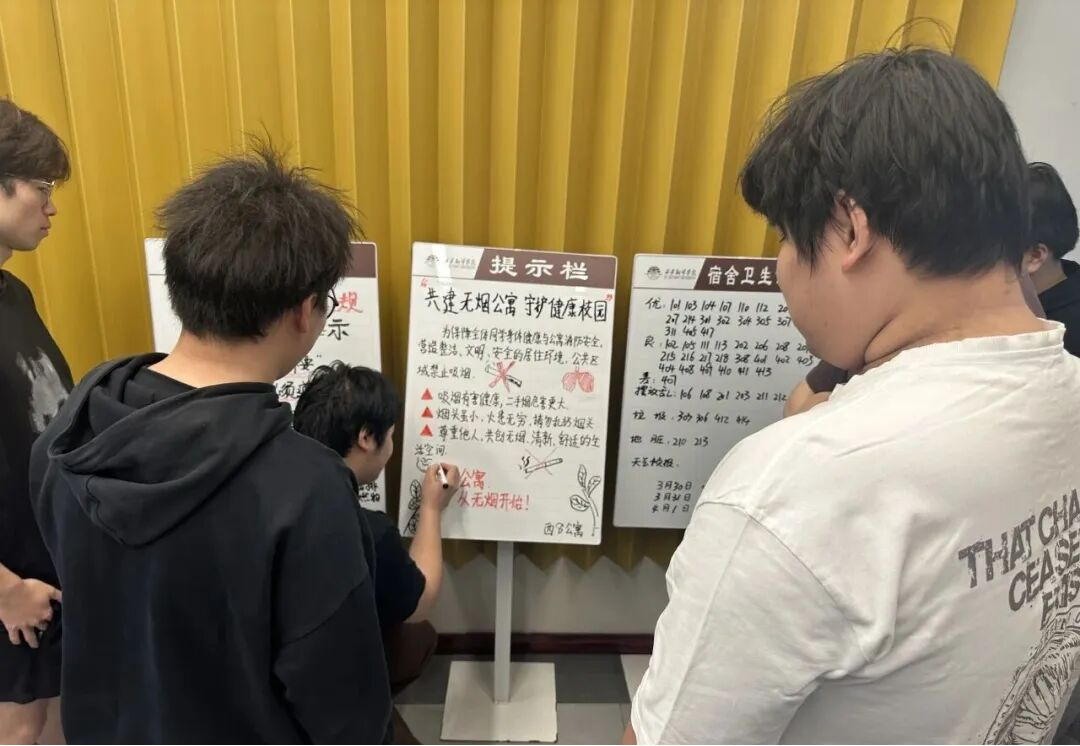 规
示
提示栏
"共建无烟公寓 守护健康校园"
为保障全体同学身体健康与公寓消防安全,
营造整洁、文明、安全的居住环境,公共区
域禁止吸烟.
吸烟有害健康,二手烟危害更大.
烟头虽小,火患无穷,请勿乱扔烟头
尊重他人,共创无烟、清新、舒适的生
活空间.
公寓
从无烟开始!
西B公寓
宿舍卫生
优: 101 103 104 107 110 112
207 214 301 302 304 305 307
311 405 417
良: 102 105 111 113 202 206 208
215 216 217 218 308 401 402 403
404 408 409 410 411 413
差: 407
摆放乱: 106 108 201 203 211 212
垃圾: 303 306 412 414
地脏: 210 213
3月30日
3月31日
4月1日
THAT CHA
CEASE